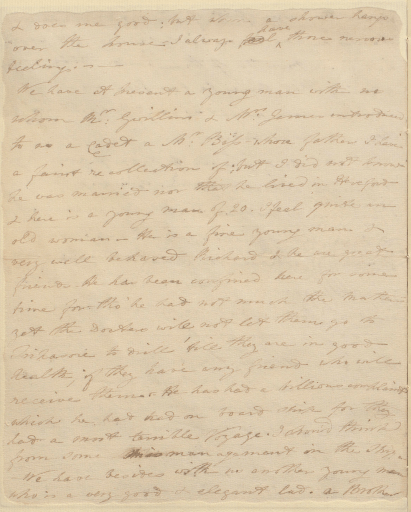 & does me good. but it a shower hangs
over the house I always have those nervous
feelings.
We have at present a young man with us
whom Mr. & Mrs. James introduced
to us a Cadet a Mr. Biss whose father I have
a faint recollection of, but I did not know
he was married nor that he lived in
& here is a young man of 20. I feel quite an
old woman. He is a fine young man &
very well behaved Richard & he are great
friends. He has been confined here for some
time for tho' he had not much the matter
yet the doctors will not let them go to
to drill 'till they are in good
health if they have any friend who will
receive them. He has had a billious complaint
which he had had on board ship for they
had a most terrible Voyage. I should think
from some mismanagement on the Ship.
We have besides with us another young man
who is a very good & elegant lad. a Brother